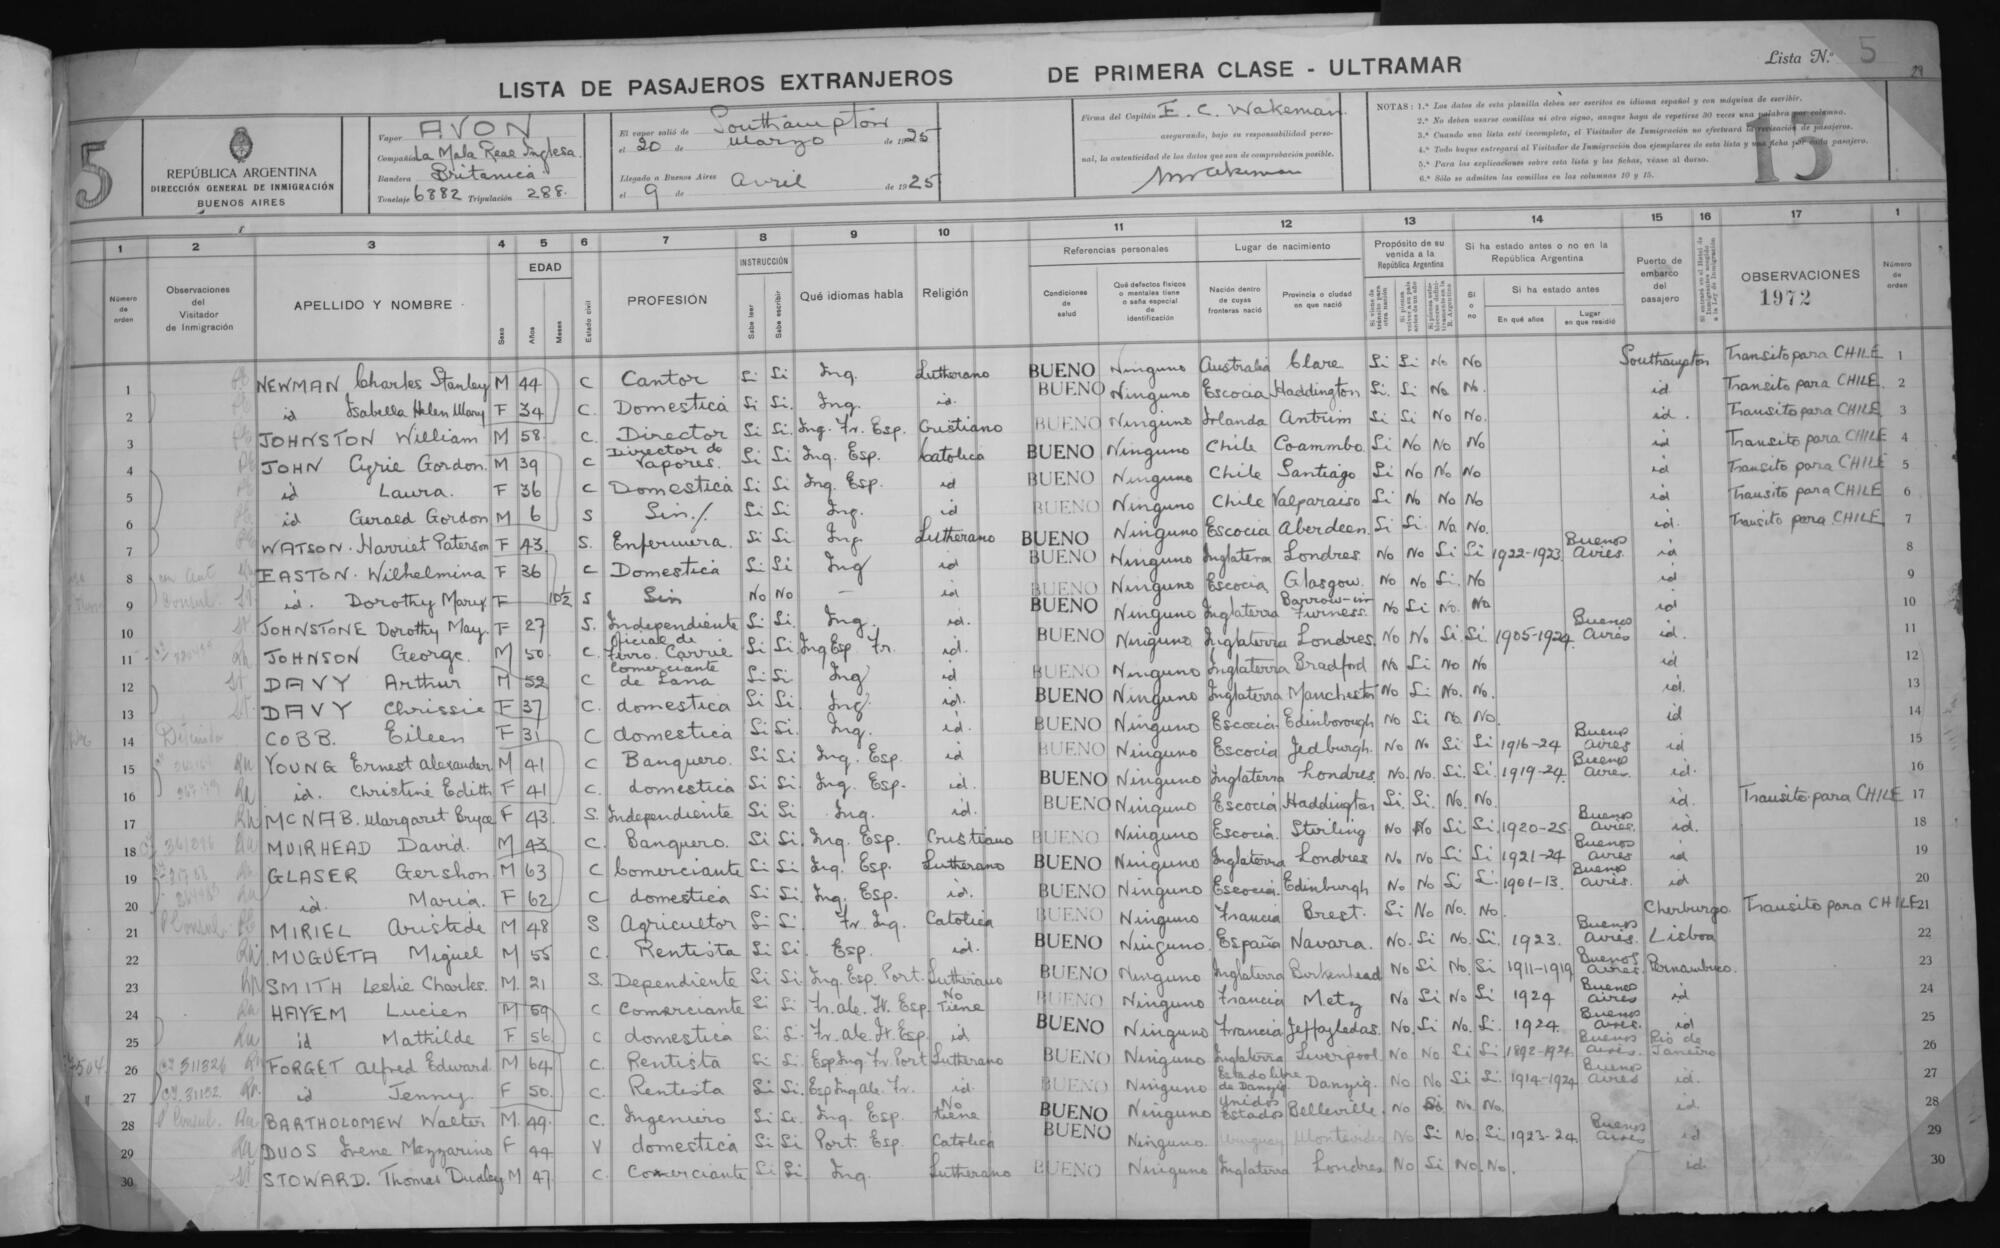 Lista N.º 5
29
LISTA DE PASAJEROS EXTRANJEROS DE PRIMERA CLASE - ULTRAMAR
5
REPÚBLICA ARGENTINA
DIRECCIÓN GENERAL DE INMIGRACIÓN
BUENOS AIRES
Vapor AVON
Compañía La Mala Real Inglesa
Bandera Britanica
Tonelaje 6882 Tripulación 288.
El vapor salió de Southampton
el 20 de Marzo de 1925
Llegado a Buenos Aires
el 9 de Avril de 1925
Firma del Capitán E. C. Wakeman
asegurando, bajo su responsabilidad perso-
nal, la autenticidad de los datos que son de comprobación posible.
NOTAS: 1.ª Los datos de esta planilla deben ser escritos en idioma español y con máquina de escribir.
2.ª No deben usarse comillas ni otro signo, aunque haya de repetirse 30 veces una palabra por columna.
3.ª Cuando una lista esté incompleta, el Visitador de Inmigración no efectuará la revisación de pasajeros.
4.ª Todo buque entregará al Visitador de Inmigración dos ejemplares de esta lista y una ficha por cada pasajero.
5.ª Para las explicaciones sobre esta lista y las fichas, véase al dorso.
6.ª Sólo se admiten las comillas en las columnas 10 y 15.
15
1 2 3 4 5 6 7 8 9 10 11 12 13 14 15 16 17 1
Número de orden
Observaciones del Visitador de Inmigración
APELLIDO Y NOMBRE
Sexo
EDAD
Años
Meses
Estado civil
PROFESIÓN
INSTRUCCIÓN
Sabe leer
Sabe escribir
Qué idiomas habla
Religión
Referencias personales
Condiciones de salud
Qué defectos físicos o mentales tiene o seña especial de identificación
Lugar de nacimiento
Nación dentro de cuyas fronteras nació
Provincia o ciudad en que nació
Propósito de su venida a la República Argentina
Si ha estado antes o no en la República Argentina
SI o no
Si ha estado antes
En qué años
Lugar en que residió
Puerto de embarco del pasajero
OBSERVACIONES
1972
Número de orden
1 NEWMAN Charles Stanley M 44 C Cantor Si Si Ing. Lutherano BUENO Ninguno Australia Clare Si Si No No Southampton Transito para CHILE 1
2 id Isabella Helen Mary F 34 C. Domestica Si Si. Ing. id. BUENO Ninguno Escocia Haddington Si. Si No No. id Transito para CHILE. 2
3 JOHNSTON William M 58. C. Director Si Si. Ing. Fr. Esp. Cristiano BUENO Ninguno Irlanda Antrim Si Si No No. id. Transito para CHILE 3
4 JOHN Cyrie Gordon. M 39 C Director de Vapores. Si Si Ing. Esp. Catolica BUENO Ninguno Chile Coammbo. Si No No No id Transito para CHILE 4
5 id Laura. F 36 C Domestica Si Si Ing. Esp. id BUENO Ninguno Chile Santiago Si No No No id Transito para CHILE 5
6 id Gerald Gordon M 6 S Sin./ Si Si Ing. id BUENO Ninguno Chile Valparaiso Si No No No id Transito para CHILE 6
7 WATSON. Harriet Paterson F 43. S. Enfermera. Si Si Ing. Lutherano BUENO Ninguno Escocia Aberdeen. Si Si. No. No. id. Transito para CHILE 7
8 EASTON. Wilhelmina F 36 C Domestica Si Si Ing id BUENO Ninguno Inglaterra Londres. No No Si Si 1922-1923. Buenos Aires. id 8
9 id. Dorothy Mary. F 10½ S Sin No No - id BUENO Ninguno Escocia Glasgow. No No Si. No id 9
10 JOHNSTONE Dorothy May. F 27 S. Independiente Si Si. Ing. id. BUENO Ninguno Inglaterra Barrow-in Furness. No Si No. No id 10
11 JOHNSON George. M 50. C. Oficial de Ferro. Carril Si Si Ing Esp Fr. id. BUENO Ninguno Inglaterra Londres. No No Si. Si. 1905-1924. Buenos Aires id. 11
12 DAVY Arthur M 52 C Comerciante de Lana Si Si Ing id BUENO Ninguno Inglaterra Bradford No Si No No id 12
13 DAVY Chrissie F 37 C. domestica Si Si. Ing. id. BUENO Ninguno Inglaterra Manchester No Si No. No. id. 13
14 COBB. Eileen F 31 C domestica Si Si. Ing. id. BUENO Ninguno Escocia Edinborough No Si No. No. id 14
15 YOUNG Ernest alexander M 41 C Banquero. Si Si Ing. Esp. id BUENO Ninguno Escocia Jedburgh. No No Si Si 1916-24 Buenos aires id 15
16 id. Christine Edith F 41 C. domestica Si Si Ing. Esp. id. BUENO Ninguno Inglaterra Londres. No. No. Si. Si. 1919-24. Buenos Aires. id. 16
17 MCNAB. Margaret Bryce F 43. S. Independiente Si Si Ing. id. BUENO Ninguno Escocia Haddington Si. Si. No. No. id. Transito para CHILE 17
18 MUIRHEAD David. M 43 C. Banquero. Si Si. Ing. Esp. Cristiano BUENO Ninguno Escocia. Stirling No No Si Si. 1920-25 Buenos Aires. id. 18
19 GLASER Gershon. M 63 C Comerciante Si Si. Ing. Esp. Lutherano BUENO Ninguno Inglaterra Londres No No Si Si 1921-24 Buenos aires id 19
20 id. Maria. F 62 C domestica Si Si. Ing. Esp. id. BUENO Ninguno Escocia. Edinburgh No No Si Si. 1901-13. Buenos aires. id 20
21 MIRIEL Aristide M 48 S Agricultor Si Si. Fr. Ing. Catolica BUENO Ninguno Francia Brest. Si No No. No. Cherburgo. Transito para CHILE 21
22 MUGUETA Miguel M 55 C. Rentista Si Si. Esp. id. BUENO Ninguno. España Navara. No. Si No. Si. 1923. Buenos aires. Lisboa 22
23 SMITH Leslie Charles. M. 21 S. Dependiente Si Si. Ing. Esp. Port. Lutherano BUENO Ninguno Inglaterra Birkenhead No Si No. Si 1911-1919 Buenos aires. Pernambuco. 23
24 HAYEM Lucien M 59 C Comerciante Si Si Fr. ale. It. Esp. No Tiene BUENO Ninguno Francia Metz No Si No Si 1924 Buenos aires id 24
25 id Mathilde F 56 C domestica Si Si. Fr. ale. It. Esp. id BUENO Ninguno Francia No. Si No. Si. 1924. Buenos aires. id 25
26 FORGET alfred Edward. M 64 C. Rentista Si Si. Esp Ing Fr. Port Lutherano BUENO Ninguno Inglaterra Liverpool. No No Si Si. 1892-1924. Buenos aires. Rio de Janeiro 26
27 id Jenny. F 50. C. Rentista Si Si. Esp Ing ale. Fr. id. BUENO Ninguno Estado libre de Danzig. Danzig. No No Si Si. 1914-1924 Buenos aires id. 27
28 BARTHOLOMEW Walter M. 49. C. Ingeniero Si Si. Ing. Esp. No tiene BUENO Ninguno Unidos Estados Belleville. No No. No. id. 28
29 DUOS Irene Mazzarino F 44 V domestica Si Si Port. Esp. Catolica BUENO Ninguno. Uruguay Montevideo No Si No. Si 1923-24. Buenos aires id 29
30 STOWARD. Thomas Dudley M 47. C. Comerciante Si Si. Ing. Lutherano BUENO Ninguno Inglaterra Londres No Si No. No. id. 30